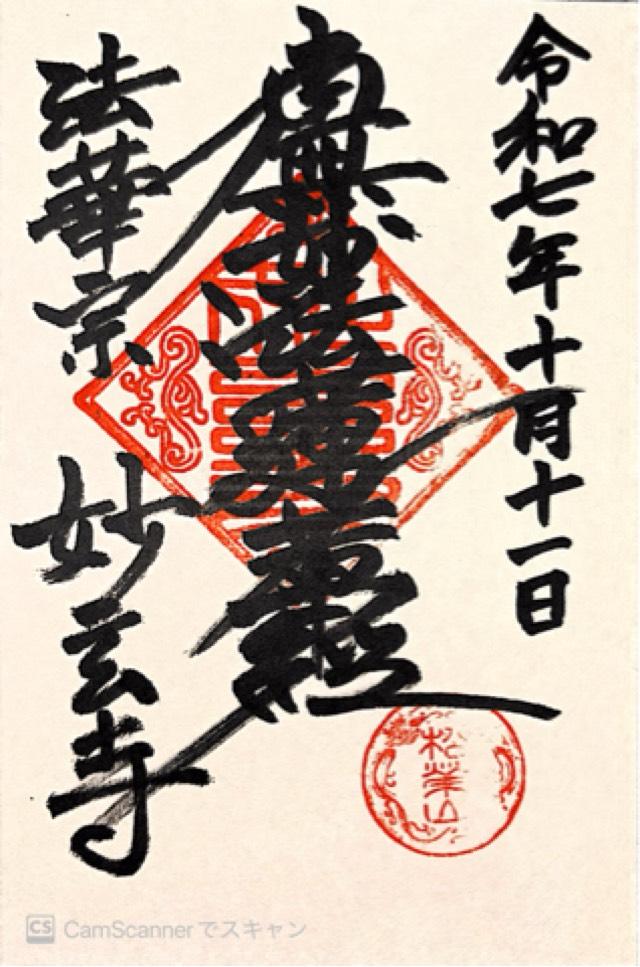 令和七年十月十一日
南無妙法蓮華経
法華宗 妙玄寺
松栄山
CS CamScannerでスキャン